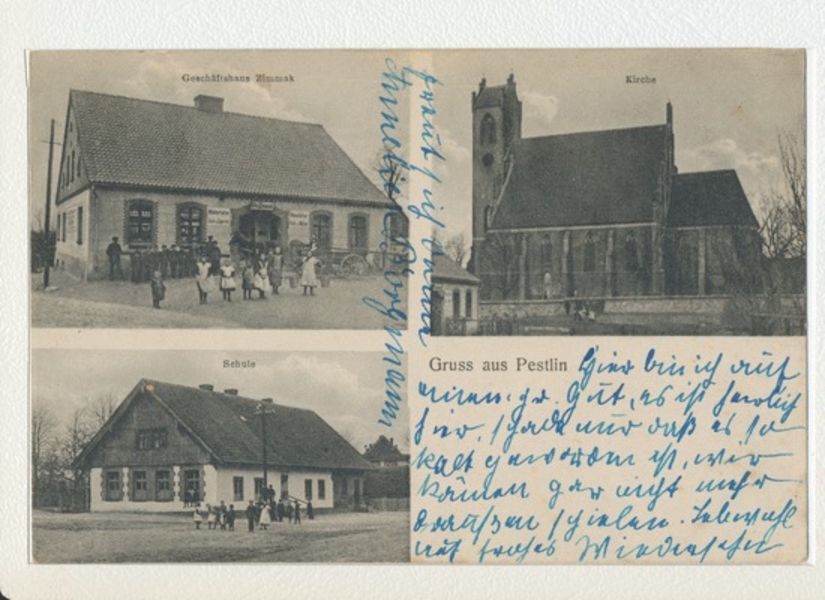 Geschäftshaus Zimmak
Kirche
Schule
Gruss aus Pestlin
Hier bin ich auf
einem gr. Gut, es ist herrlich
hier, schade nur daß es so
kalt geworden ist, wir
können gar nicht mehr
draußen spielen. Lebewohl
auf frohes Wiedersehen
freut sich Deine